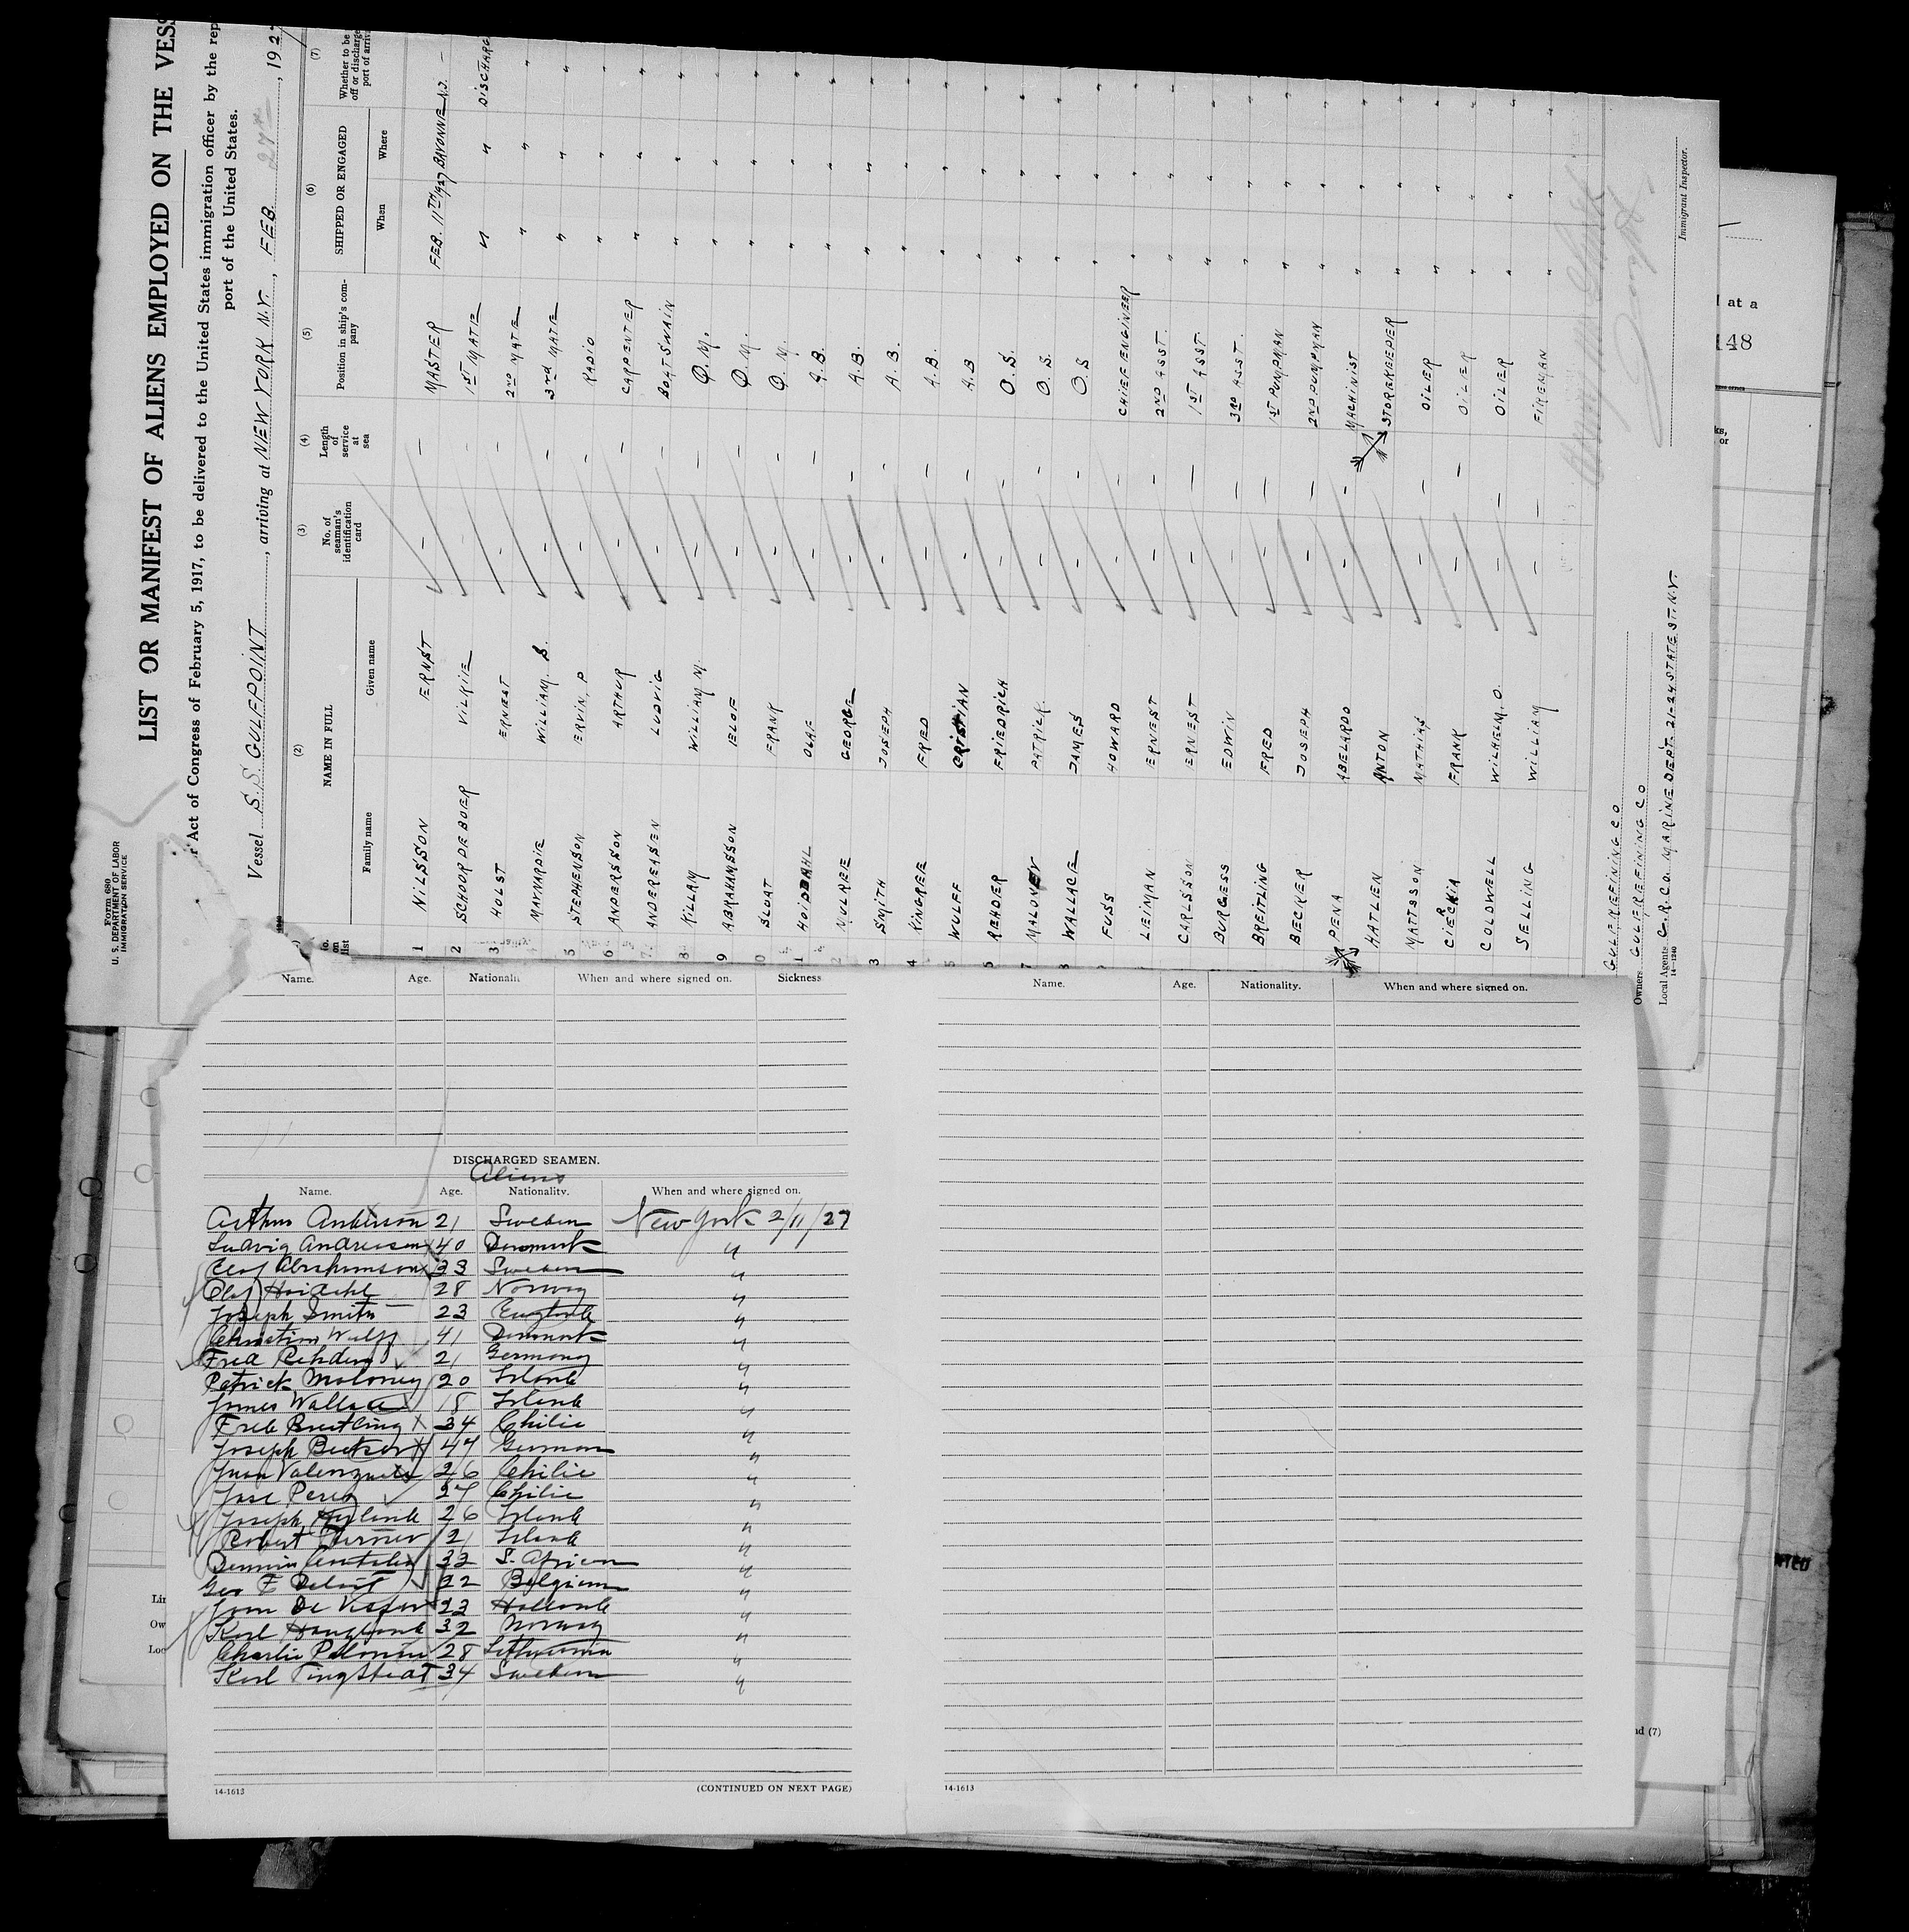 Form 680
U. S. DEPARTMENT OF LABOR
IMMIGRATION SERVICE
LIST OR MANIFEST OF ALIENS EMPLOYED ON THE VESS
Act of Congress of February 5, 1917, to be delivered to the United States immigration officer by the rep
port of the United States.
Vessel S.S. GULFPOINT, arriving at NEW YORK N.Y., FEB. 27th, 192
(2) (3) (4) (5) (6) (7)
NAME IN FULL No. of seaman's identification card Length of service at sea Position in ship's company SHIPPED OR ENGAGED Whether to be
off or discharge
port of arriv
Family name Given name When Where
1 NILSSON ERNST — — MASTER FEB. 11TH 1927 BAYONNE N.J. —
2 SCHOORDEBOER — — 1ST MATE " " DISCHARG
3 HOLST ERNEST — — 2ND MATE " " "
MAYNARDIE WILLIAM. S. — — 3rd MATE " " "
5 STEPHENSON ERVIN. P — — RADIO " " "
6 ANDERSSON ARTHUR — — CARPENTER " " "
7 ANDEREASEN LUDVIG — — BOATSWAIN " " "
8 KILLAM WILLIAM M. — — Q.M. " " "
9 ABRAHAMSSON ELOF — — Q.M. " " "
10 BLOAT FRANK — — Q.M. " " "
1 HOIDAHL OLAF — — A.B. " " "
2 MULREE GEORGE — — A.B. " " "
3 SMITH JOSEPH — — A.B. " " "
4 KINGREE FRED — — A.B. " " "
5 WULFF CRISTIAN — — A.B " " "
REHDER FRIEDRICH — — O.S. " " "
7 MALONEY PATRICK. — — O.S. " " "
8 WALLACE JAMES — — O.S " " "
FUSS HOWARD — — CHIEF ENGINEER " " "
LEIMAN ERNEST — — 2ND ASST. " " "
CARLSSON ERNEST — — 1ST ASST. " " "
BURGESS EDWIN — — 3RD ASST. " " "
BREITLING FRED — — 1ST PUMPMAN " " "
BECKER JOSEPH — — 2ND PUMPMAN " " "
PENA ABELARDO — — MACHINIST " " "
HATLIEN ANTON — STOREKEEPER " " "
MATTSSON MATHIAS — — OILER " " "
FRANK — — OILER " " "
COLDWELL WILHELM. O. — — OILER " " "
SELLING WILLIAM — — FIREMAN " " "
GULF REFINING CO
Owners GULF REFINING CO
Local Agents G.R.CO. MARINE DEPT. 21-24 STATE ST. N.Y.
14—1240
Immigrant Inspector.
at a
148
Name. Age. When and where signed on. Sickness
Name. Age. Nationality. When and where signed on.
DISCHARGED SEAMEN.
Aliens
Name. Age. Nationality. When and where signed on.
Arthur Anderson 21 Sweden New York 2/11/27
Ludvig Andreasen 40 Denmark "
Elof Abrahamson 33 Sweden "
Olaf Hoidahl 28 Norway "
Joseph Smith 23 England "
Christian Wulff 41 Denmark "
Fred Rehder 21 Germany "
Patrick Maloney 20 Irland "
James Wallace 18 Irland "
Fred Breitling 34 Chilie "
Joseph Becker 44 German "
Juan Valenzuela 26 Chilie "
Jose Perez 27 Chilie "
Joseph 26 Irland "
Robert 21 Irland "
Dennis 32 S. African "
Geo F 22 Belgium "
John De Visser 23 Holland "
Karl 32 Norway "
Charlie 28 Lithuania "
Karl Tingstedt 34 Sweden "
14-1613 (CONTINUED ON NEXT PAGE)
14-1613
nd (7)